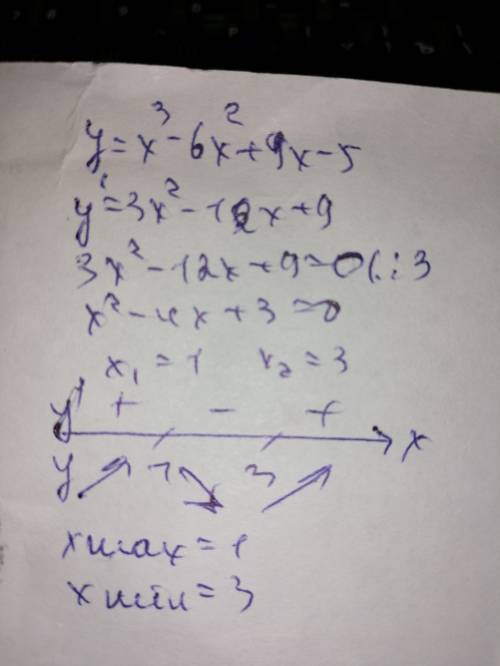 y = x³ - 6x² + 9x - 5
y' = 3x² - 12x + 9
3x² - 12x + 9 = 0 | : 3
x² - 4x + 3 = 0
x₁ = 1 x₂ = 3
y' + - +
x
y ↗ 1 ↘ 3 ↗
xmax = 1
xmin = 3